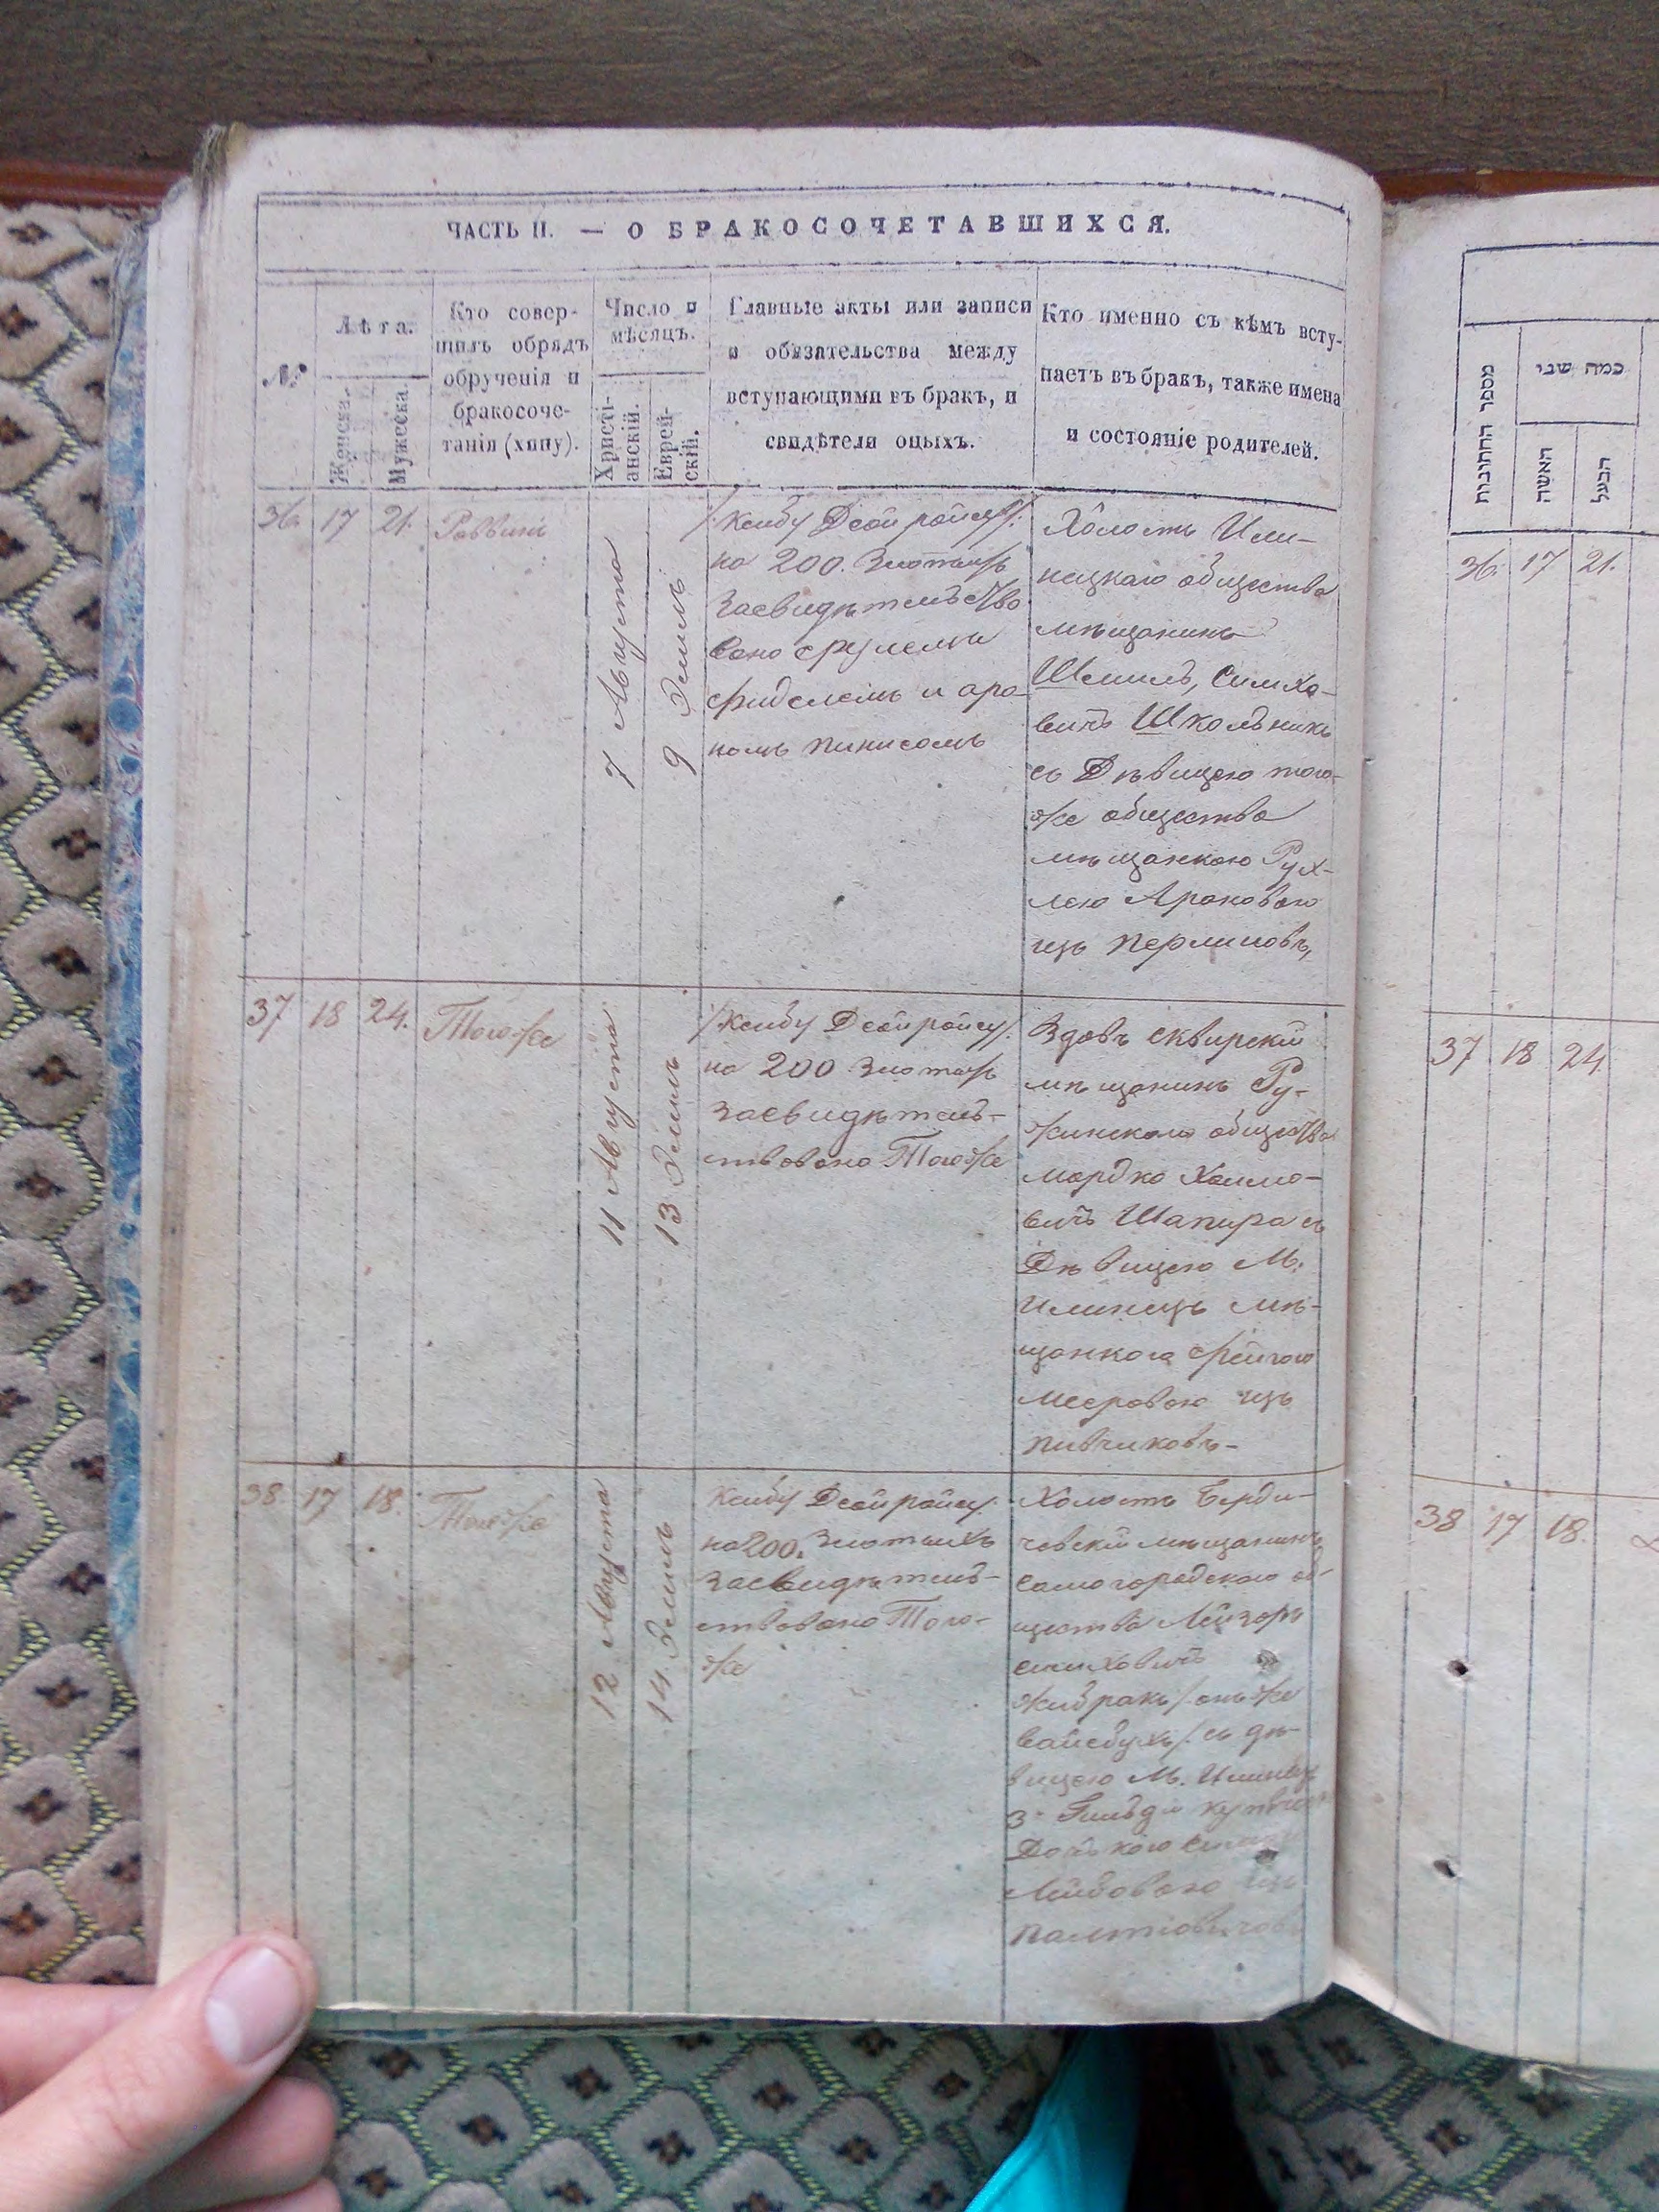 ЧАСТЬ II. — О БРАКОСОЧЕТАВШИХСЯ.
№
Лѣта.
Женска.
Мужеска.
Кто совер-
шилъ обрядъ
обрученія и
бракосоче-
танія (хипу).
Число и
мѣсяцъ.
Христі-
анскій.
Еврей-
скій.
Главные акты или записи
и обязательства между
вступающими въ бракъ, и
свидѣтели оныхъ.
Кто именно съ кѣмъ всту-
паетъ въ бракъ, также имена
и состояніе родителей.
36. 17 21. Раввинъ
7 Августа
9 Элиль
на 200. Злотыхъ
засвидѣтельство
вано
и аро
номъ пинисомъ
Холостъ Или-
нецкаго общества
мѣщанинъ
Шмиль, Симхо-
вичъ Школьникъ
съ Дѣвицею того-
же общества
мѣщанкою Рух-
лею Ароновою
изъ Перлиновъ,
37 18 24. Тогоже
11 Августа
13 Элиль
на 200 Злотыхъ
засвидѣтель-
ствовано Тогоже
Вдовъ сквирскій
мѣщанинъ Ру-
жинскаго общества
мордко Хаимо-
вичъ Шапира съ
Дѣвицею М.
Илинецъ мѣ-
щанкою фейгою
мееровою изъ
пивчиковъ-
38. 17 18. Тогоже
12 Августа
14 Элиль
на 200. Злотыхъ
засвидѣтель-
ствовано Того-
же
Холостъ Берди-
чевскій мѣщанинъ
самогородскаго об-
щества Лейзоръ
онъ же
вайсбухъ/. съ дѣ-
вицею М. Илинецъ
3- Гильдіи
Лейбовою изъ
מספר החתונות
כמה שני
האשה
הבעל
36. 17 21.
37 18 24
38 17 18.